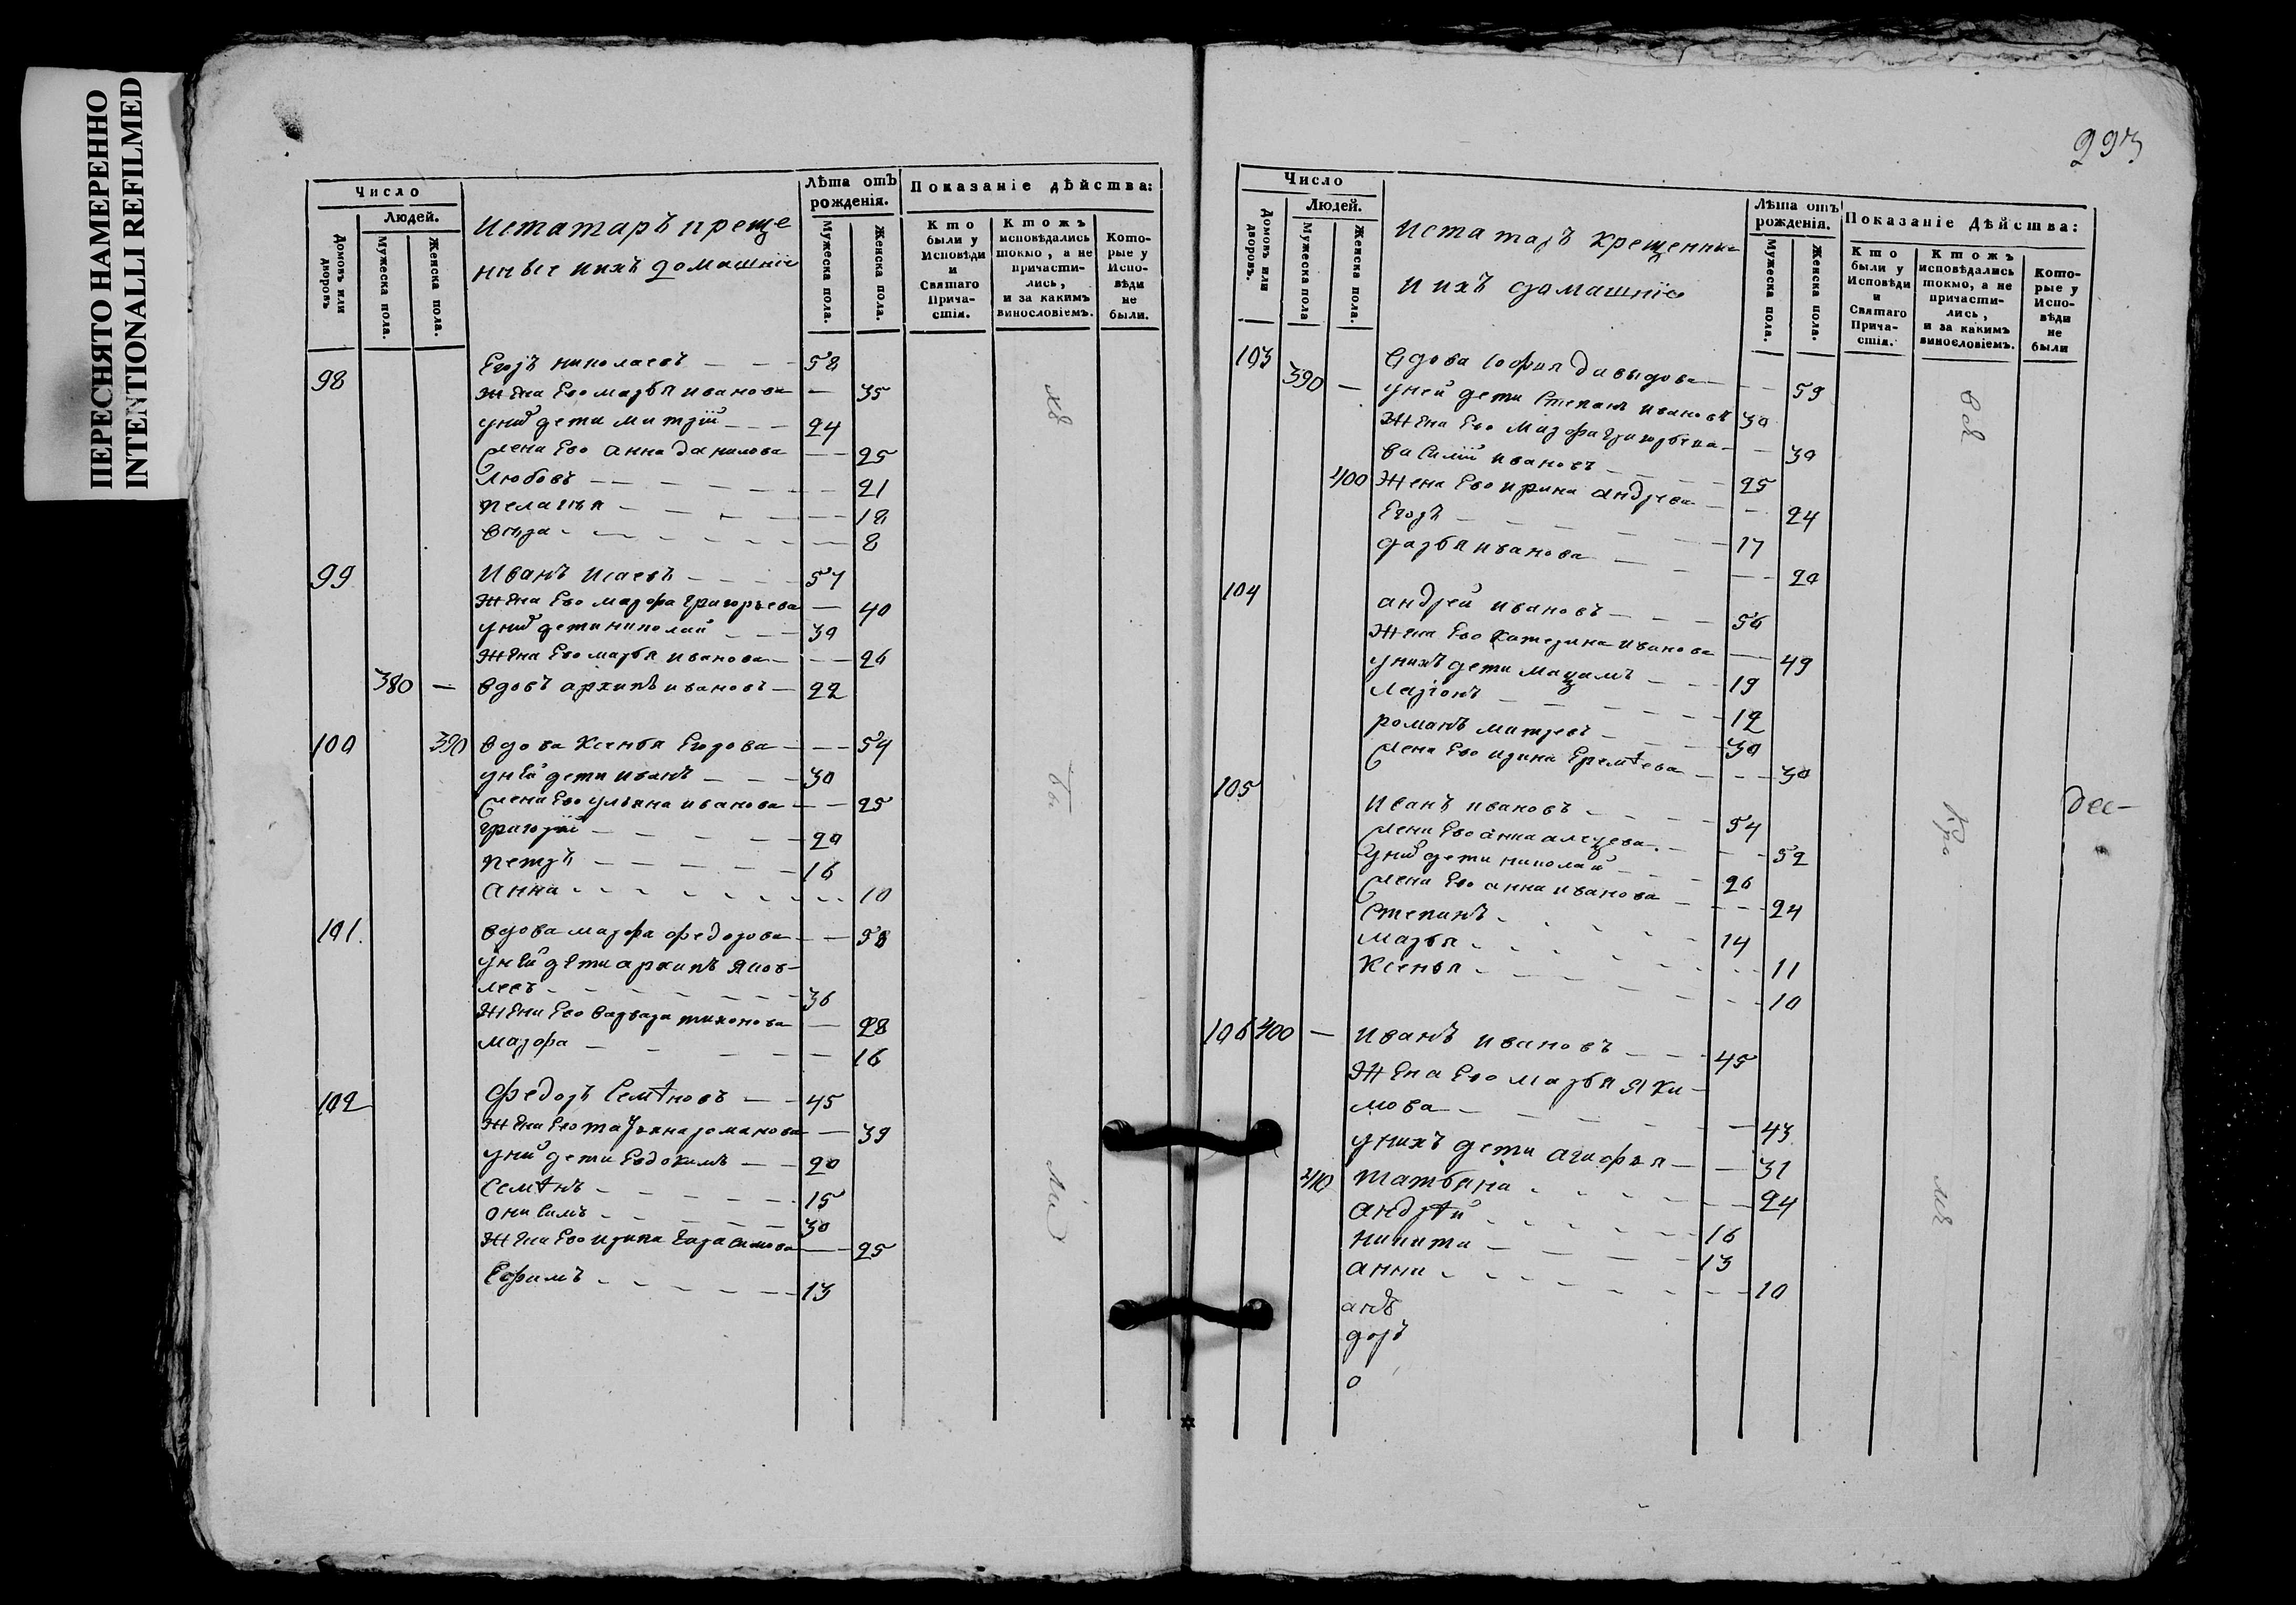 ПЕРЕСНЯТО НАМЕРЕННО
INTENTIONALLI REFILMED
Число
Людей.
Домовъ или дворовъ
Мужеска пола.
Женска пола.
Истатаръ креще
нные иихъ домашнїе
Лѣта отъ рожденія.
Мужеска пола.
Женска пола.
Показаніе дѣйства:
Кто были у Исповѣди и Святаго Причастія.
Ктожъ исповѣдались токмо, а не причастились, и за какимъ винословіемъ.
Которые у Исповѣди не были.
98 Егоръ николаевъ — 58
жена Ево марья иванова — 35
уних дети митрїи — 24
жена Ево анна данилова — 25
Любовь — 21
пелагѣя — 18
вѣра — 8
99 Иванъ Исаевъ — 57
жена Ево марфа григорьева — 40
уних дети николаи — 30
жена Ево марья иванова — 26
380 — вдовъ архипъ ивановъ — 22
100 390 вдова Ксенья Егорова — 54
уней дети иванъ — 30
жена Ево ульяна иванова — 25
григорїи — 20
петръ — 16
анна — 10
101. вдова марфа федорова — 58
уней дети архипъ яков-
левъ — 36
жена Ево варвара тихонова — 28
марфа — 16
102 федоръ Семѣновъ — 45
жена Ево татьяна романова — 39
уних дети Евдокимъ — 20
Семѣнъ — 15
онисимъ — 30
жена Ево ирина герасимова — 25
Ефимъ — 13
бы
ли
293
Число
Людей.
Домовъ или дворовъ.
Мужеска пола
Женска пола.
Истатаръ крещенные
и ихъ домашнїе
Лѣта отъ рожденія.
Мужеска пола.
Женска пола.
Показаніе Дѣйства:
Кто были у Исповѣди и Святаго Причастія.
Ктожъ исповѣдались токмо, а не причастились, и за какимъ винословіемъ.
Которые у Исповѣди не были
103 вдова София давыдова — 59
390 — уней дети Степанъ ивановъ 30
жена Ево марфа григорьева — 30
василїи ивановъ — 25
400 жена Ево ирина андреева — 24
Егоръ — 17
дарья иванова — 20
104 андреи ивановъ — 50
жена Ево катерина иванова — 49
унихъ дети — 19
Ларїонъ — 12
романъ митревъ — 30
жена Ево ирина Еремѣева — 30
105 иванъ ивановъ — 54
жена Ево анна — 52
уних дети николаи — 26
жена Ево анна иванова — 24
Степанъ — 14
марья — 11
Ксенья — 10
106 400 — иванъ ивановъ — 45
жена Ево марья яки-
мова — 43
унихъ дети агафья — 31
410 татьяна — 24
андрѣи — 16
никита — 13
анна — 10
андѣ
доръ
о